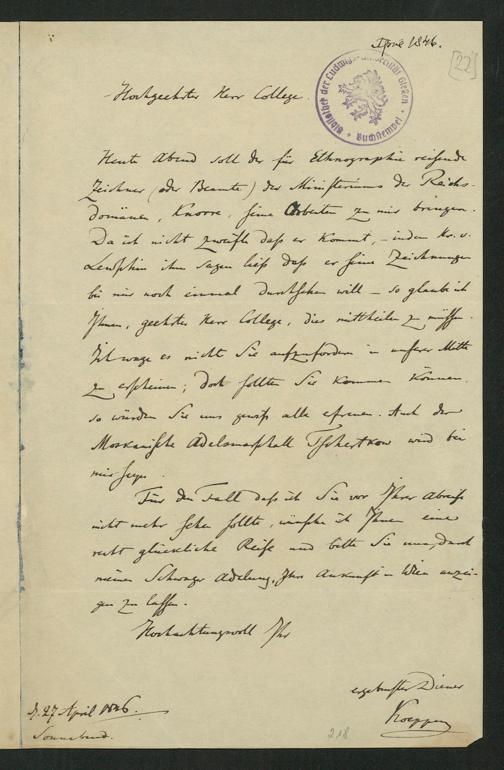 April 1846.
[22]
Bibliothek der Ludwigs-Universität Gießen
Buchstempel
Hochgeehrter Herr College.
Heute Abend soll der für Ethnographie reisende
Zeichner (oder Beamte) des Ministeriums der Reichs-
domänen, Knorre, seine Arbeiten zu mir bringen.
Da ich nicht zweifle daß er kommt, – indem Hr. v.
ihm sagen ließ daß er seine Zeichnungen
bei mir noch einmal durchsehen will – so glaub ich
Ihnen, geehrter Herr College, dies mittheilen zu müssen.
Ich wage es nicht Sie aufzufordern in unserer Mitte
zu erscheinen; doch sollten Sie kommen können,
so würden Sie uns gewiß alle erfreuen. Auch der
Moskauische Adelsmarschall Tschertkow wird bei
mir seyn.
Für den Fall daß ich Sie vor Ihrer Abreise
nicht mehr sehen sollte, wünsche ich Ihnen eine
recht glückliche Reise und bitte Sie mir, durch
meinen Schwager Adelung, Ihre Ankunft in Wien anzei-
gen zu lassen.
Hochachtungsvoll Ihr
ergebenster Diener
Koeppen
d. 27 April 1846.
Sonnabend.
218